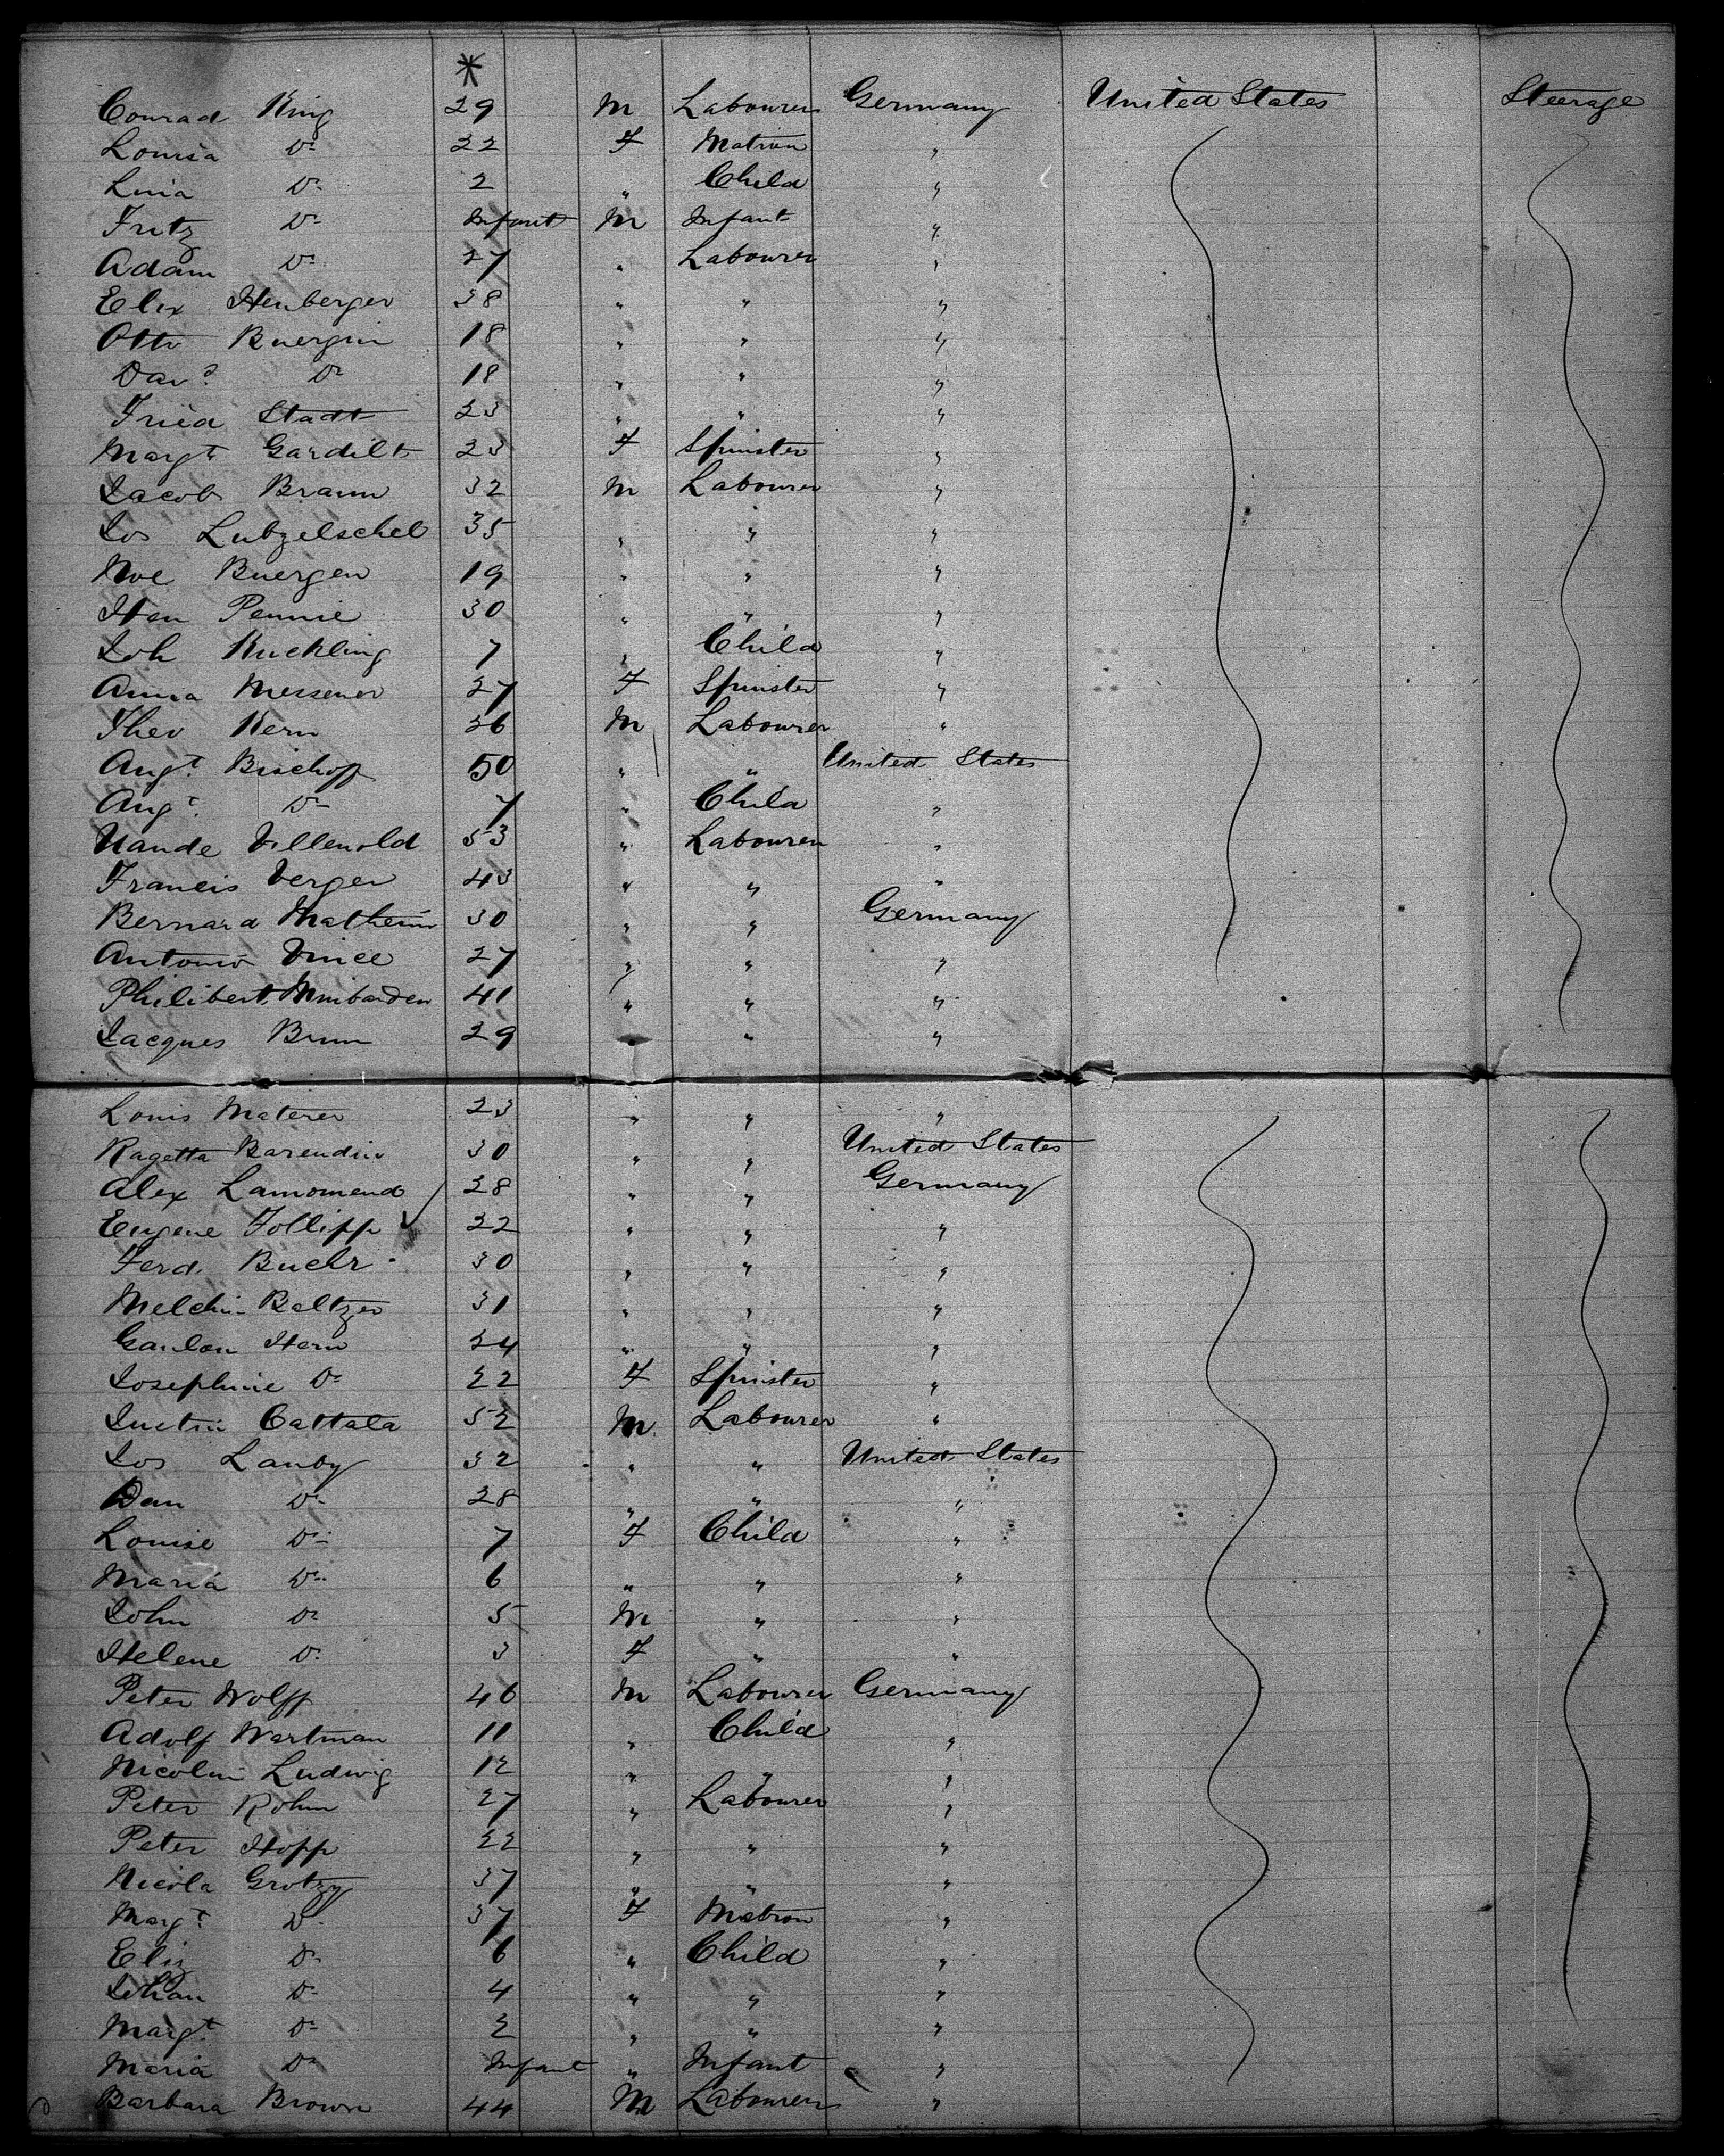 *
Conrad King 29 M Labourer Germany United States Steerage
Louisa Do 22 F Matron "
Lina Do 2 " Child "
Fritz Do Infant M Infant "
Adam Do 27 " Labourer "
Elix Henberger 38 " " "
Otto Buergin 18 " " "
Davd Do 18 " " "
Fried Stadt 23 " " "
Margt Gardilt 23 F Spinster "
Jacob Braun 32 M Labourer "
Jos Lubzelschel 35 " " "
Noe Buergen 19 " " "
Hen Pennie 30 " " "
Joh Kuckling 7 " Child "
Anna Messener 27 F Spinster "
Theo Kern 36 M Labourer "
Augt Bischoff 50 " " United States
Augt Do 7 " Child "
Nande Villenold 53 " Labourer "
Francis Verger 43 " " "
Bernard Mathein 30 " " Germany
Antonio Vince 27 " " "
Philibert Minbarden 41 " " "
Jacques Brun 29 " " "
Louis Materer 23 " " "
Ragetta Barendin 30 " " United States
Alex Lamomend 28 " " Germany
Eugene Follipp 22 " " "
Ferd. Buehr 30 " " "
Melchi Baltzer 31 " " "
Hern 24 " " "
Josephine Do 22 F Spinster "
Justin Cattala 52 M. Labourer "
Jos Lanby 32 " " United States
Dan Do 28 " " "
Louise Do 7 F Child "
Maria Do 6 " " "
John Do 5 M " "
Helene Do 3 F " "
Peter Wolff 46 M Labourer Germany
Adolf Wartman 11 " Child "
Nicolin Ludwig 12 " " "
Peter Rohm 27 " Labourer "
Peter Hopp 22 " " "
Nicola Grotzy 37 " " "
Margt Do 37 F Matron "
Eliz Do 6 " Child "
Johan Do 4 " " "
Margt Do 2 " " "
Maria Do Infant " Infant "
Barbara Brown 44 M Labourer "